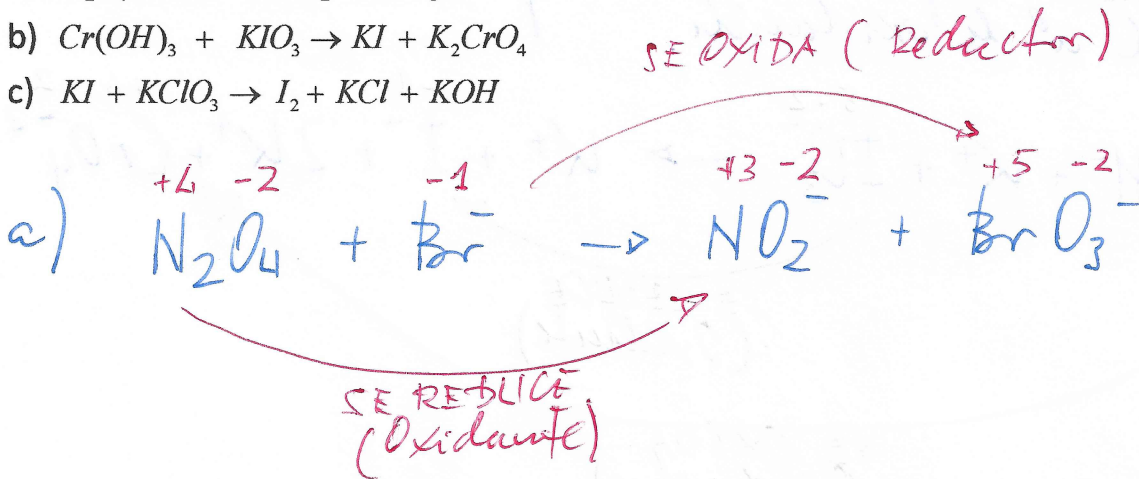 b) Cr(OH)₃ + KIO₃ → KI + K₂CrO₄
c) KI + KClO₃ → I₂ + KCl + KOH
SE OXIDA (Reductor)
+4 -2 -1 +3 -2 +5 -2
a) N₂O₄ + Br⁻ → NO₂⁻ + BrO₃⁻
SE REDUCE
(Oxidante)